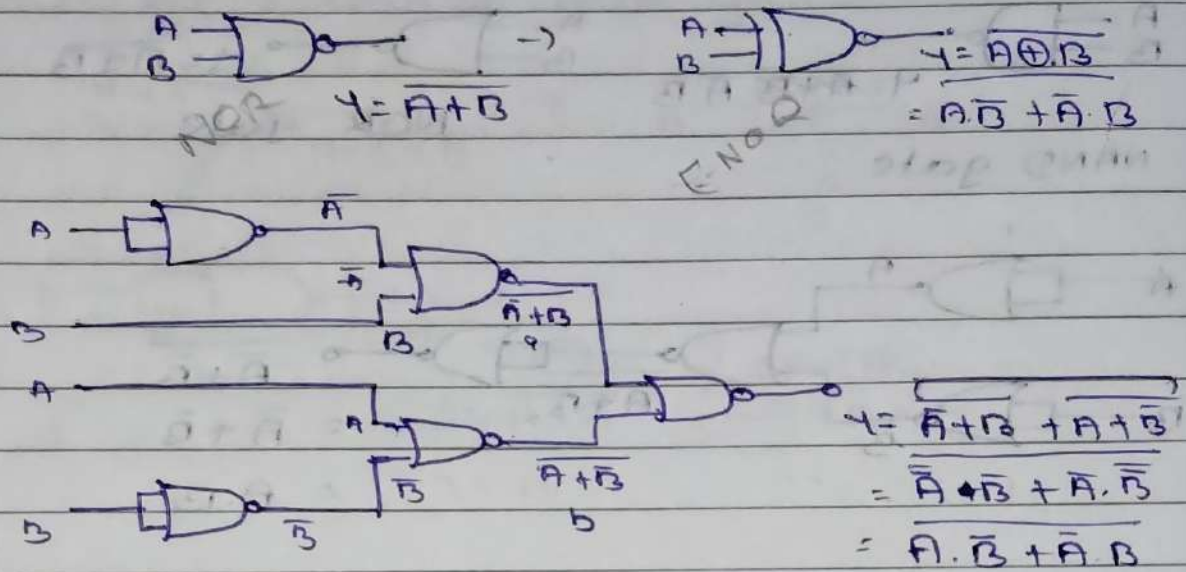 A
B
Y = \overline{A+B}
NOR
→
A
B
Y = \overline{A⊕.B}
= \overline{A.\overline{B} + \overline{A}.B}
ENOR
A
\overline{A}
\overline{A}
B
B
\overline{\overline{A}+B}
a
A
A
\overline{B}
\overline{A+\overline{B}}
b
B
\overline{B}
Y = \overline{\overline{\overline{A}+B} + \overline{A+\overline{B}}}
= \overline{\overline{\overline{A}}.\overline{B} + \overline{A}.\overline{\overline{B}}}
= \overline{A.\overline{B} + \overline{A}.B}